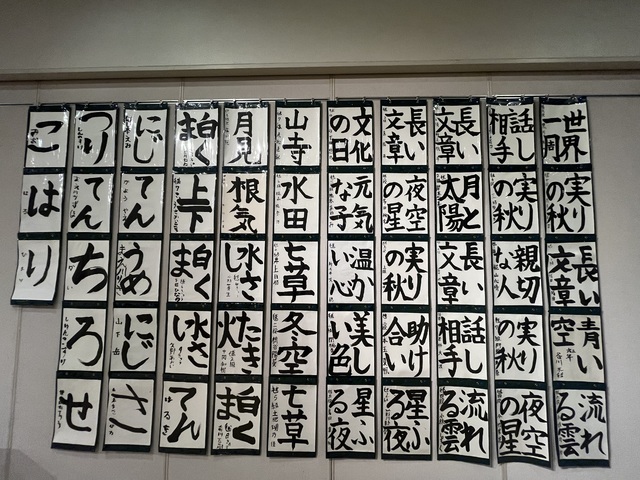 世界
一周
実り
の秋
長い
文章
青い
空
流れ
る雲
話し
相手
実り
の秋
親切
な人
実り
の秋
夜空
の星
長い
文章
月と
太陽
長い
文章
話し
相手
流れ
る雲
長い
文章
夜空
の星
実り
の秋
助け
合い
星ふ
る夜
文化
の日
元気
な子
温か
い心
美し
い色
星ふ
る夜
山寺
水田
七草
冬空
七草
月見
根気
水さ
し
たき
火
白く
ま
白く
ま
上下
白く
ま
水さ
し
てん
にじ
てん
うめ
にじ
さ
つり
てん
ち
ろ
せ
こ
は
り